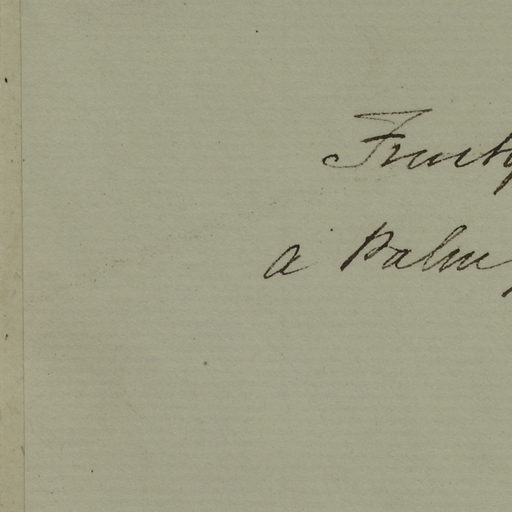 Fruits
a Palm